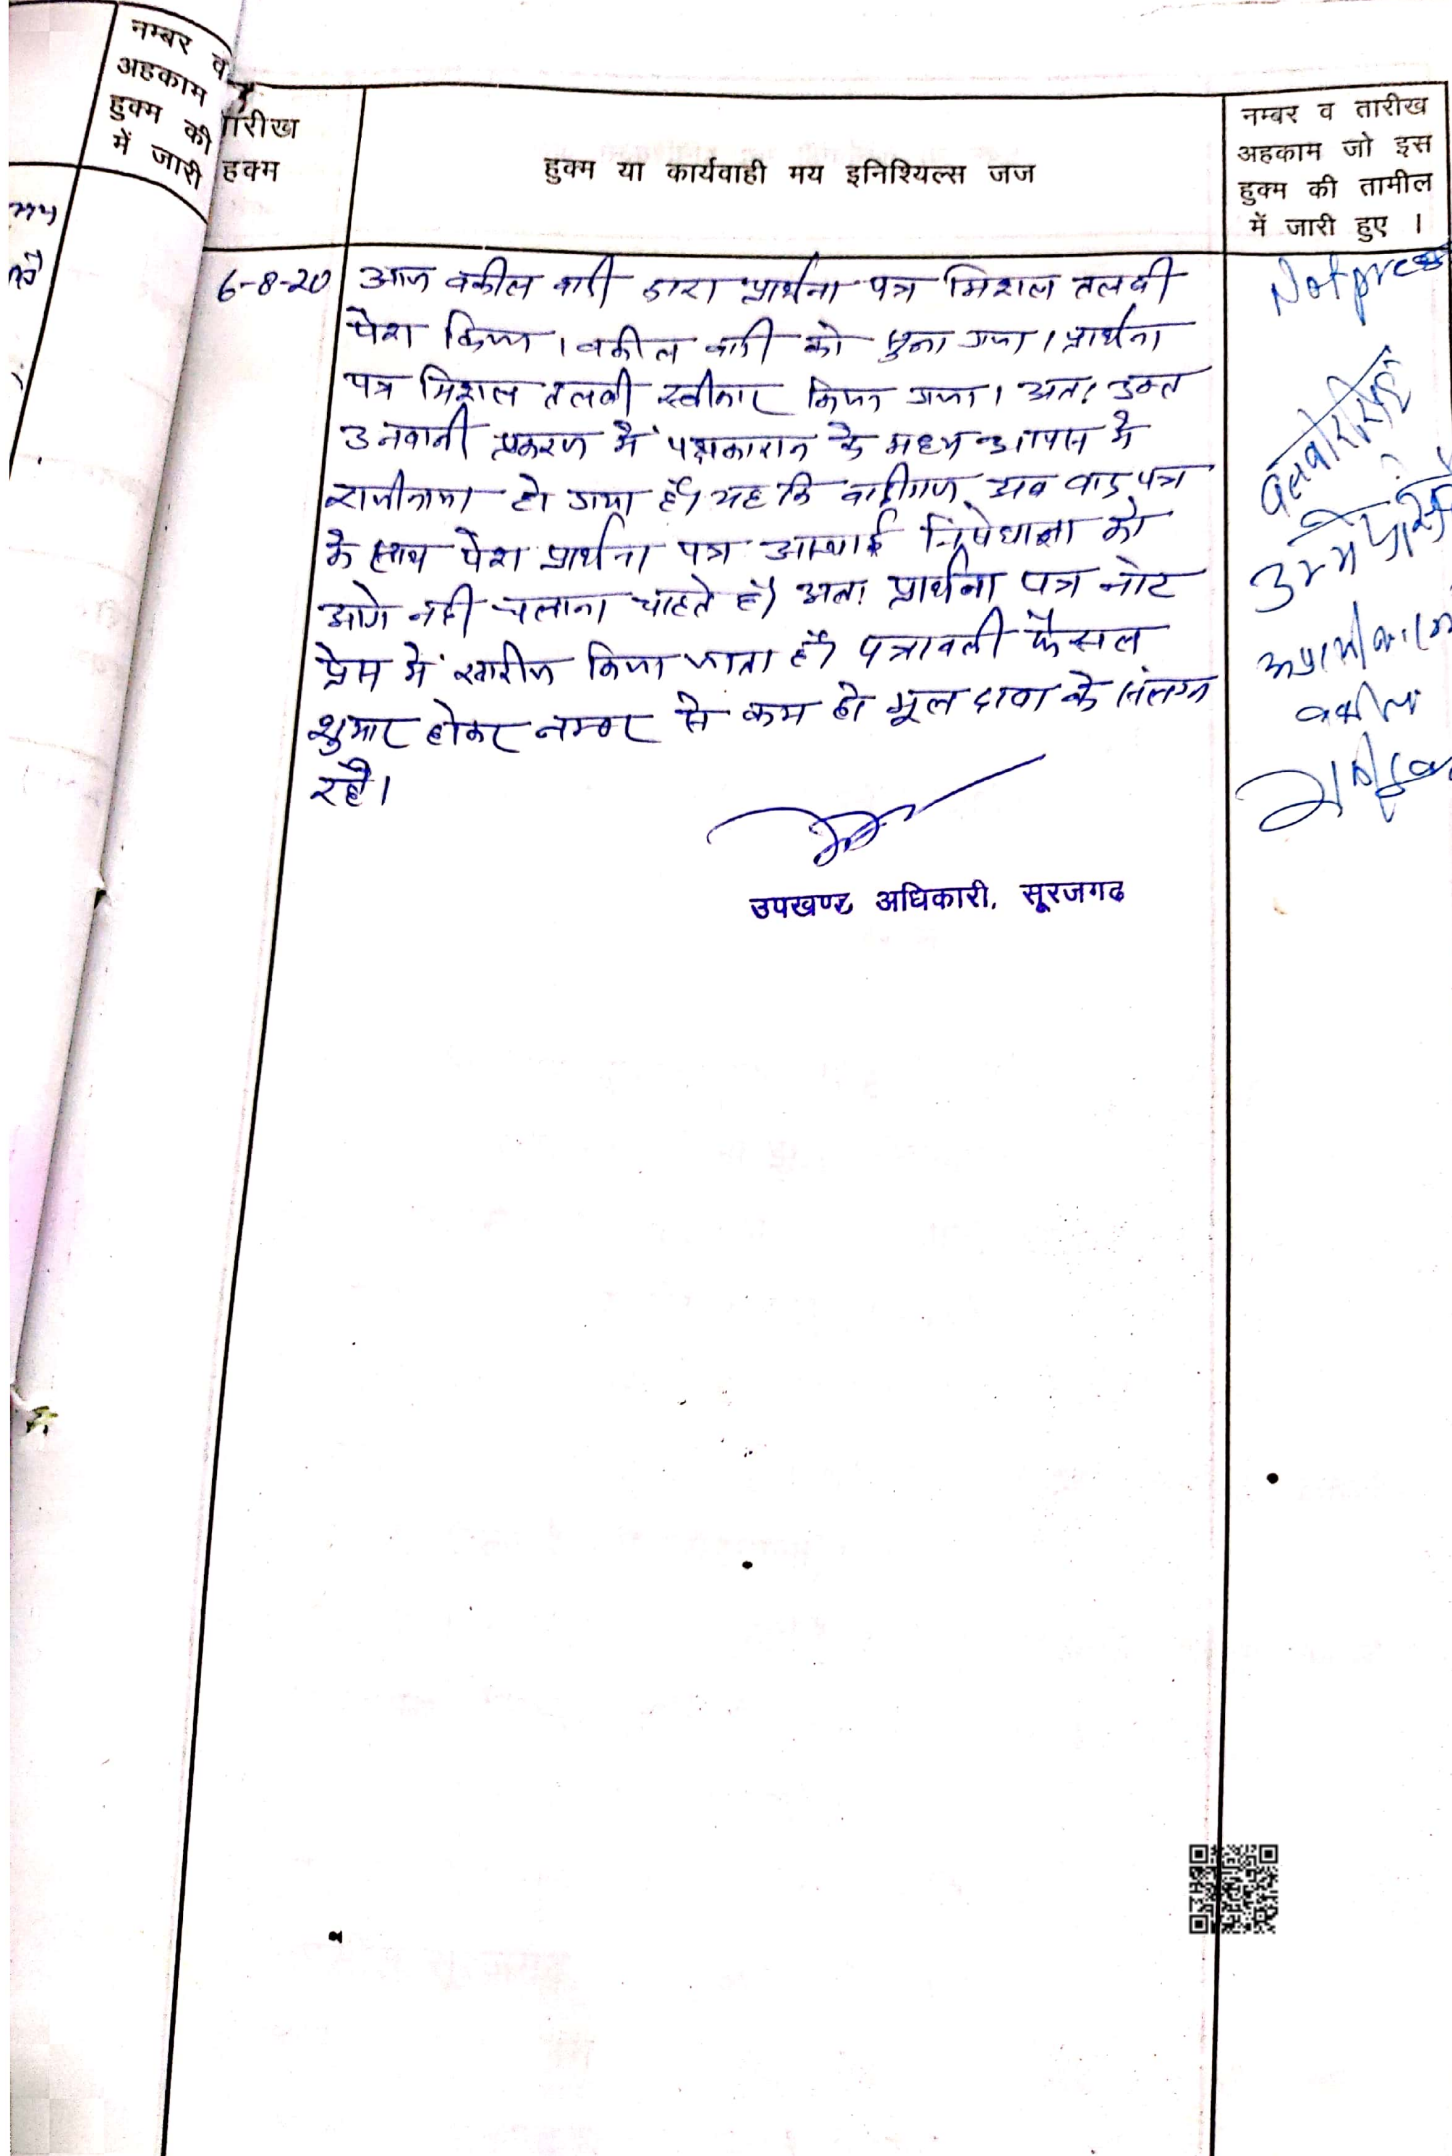 नम्बर व
अहकाम
हुक्म की
में जारी
तारीख
हुक्म
हुक्म या कार्यवाही मय इनिश्यिल्स जज
नम्बर व तारीख
अहकाम जो इस
हुक्म की तामील
में जारी हुए ।
6-8-20
आज वकील वादी द्वारा प्रार्थना पत्र मिशल तलबी
पेश किया । वकील वादी को सुना गया । प्रार्थना
पत्र मिशल तलबी स्वीकार किया गया। अतः उक्त
उनवानी प्रकरण में पक्षकारान के मध्य आपस में
राजीनामा हो गया है। यह कि वादीगण अब वाद पत्र
के साथ पेश प्रार्थना पत्र अस्थाई निषेधाज्ञा को
आगे नहीं चलाना चाहते है। अतः प्रार्थना पत्र नोट
प्रेस में खारीज किया जाता है। पत्रावली फैसल
शुमार होकर नम्बर से कम हो मूल दावा के संलग्न
रहे।
उपखण्ड अधिकारी, सूरजगढ
Not press
वकील